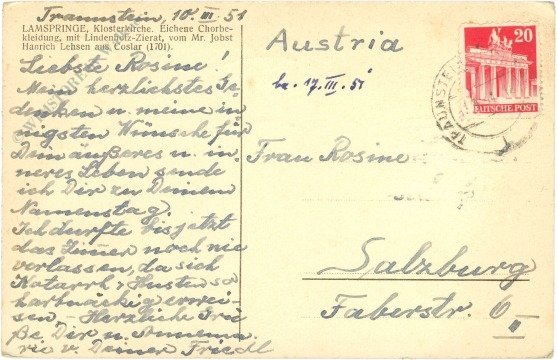 Traunstein, 10. III. 51
LAMSPRINGE, Klosterkirche. Eichene Chorbe-
kleidung, mit Lindenholz-Zierat, von Mr. Jobst
Hanrich Lehsen aus Goslar (1701).
Liebste Rosine!
Mein herzlichstes Ge-
denken u. meine in-
nigsten Wünsche für
Dein äußeres u. in-
neres Leben sende
ich Dir zu Deinem
Namenstag.
Ich durfte bis jetzt
das Zimer noch nie
verlassen, da sich
Katarrh & Husten so
hartnäckig erwei-
sen - Herzliche Grü-
ße Dir u. Annema-
rie v. Deiner Friedl
Austria
be. 17. III. 51
Frau Rosine
Salzburg
Faberstr. 6 II
20
DEUTSCHE POST
TRAUNSTEIN